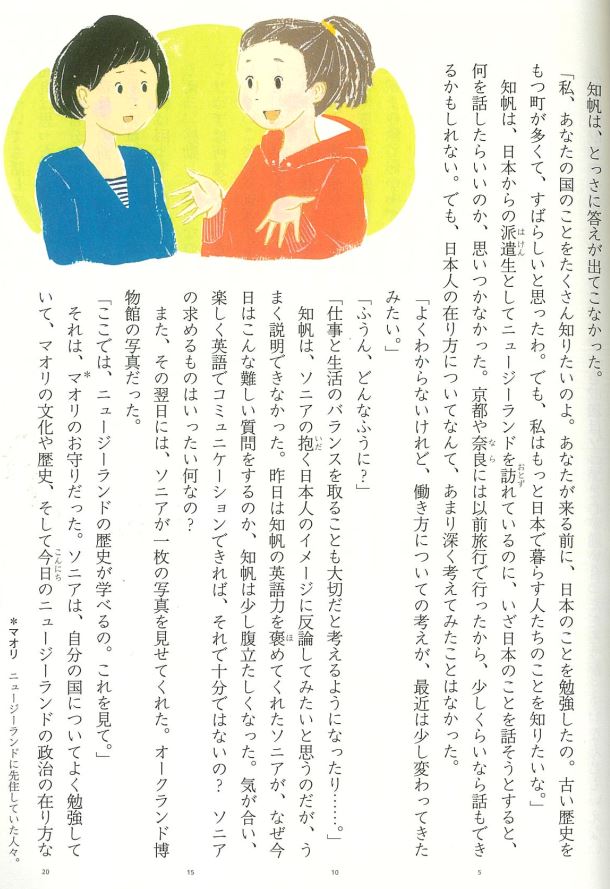 知帆は、とっさに答えが出てこなかった。
「私、あなたの国のことをたくさん知りたいのよ。あなたが来る前に、日本のことを勉強したの。古い歴史を
もつ町が多くて、すばらしいと思ったわ。でも、私はもっと日本で暮らす人たちのことを知りたいな。」
知帆は、日本からの派遣生としてニュージーランドを訪れているのに、いざ日本のことを話そうとすると、
何を話したらいいのか、思いつかなかった。京都や奈良には以前旅行で行ったから、少しくらいなら話もでき
るかもしれない。でも、日本人の在り方についてなんて、あまり深く考えてみたことはなかった。
「よくわからないけれど、働き方についての考えが、最近は少し変わってきた
みたい。」
「ふうん、どんなふうに？」
「仕事と生活のバランスを取ることも大切だと考えるようになったり……。」
知帆は、ソニアの抱く日本人のイメージに反論してみたいと思うのだが、う
まく説明できなかった。昨日は知帆の英語力を褒めてくれたソニアが、なぜ今
日はこんな難しい質問をするのか、知帆は少し腹立たしくなった。気が合い、
楽しく英語でコミュニケーションできれば、それで十分ではないの？　ソニア
の求めるものはいったい何なの？
また、その翌日には、ソニアが一枚の写真を見せてくれた。オークランド博
物館の写真だった。
「ここでは、ニュージーランドの歴史が学べるの。これを見て。」
それは、＊マオリのお守りだった。ソニアは、自分の国についてよく勉強して
いて、マオリの文化や歴史、そして今日のニュージーランドの政治の在り方な
＊マオリ　ニュージーランドに先住していた人々。
はけん
おとず
なら
いだ
ほ
こんにち
5
10
15
20